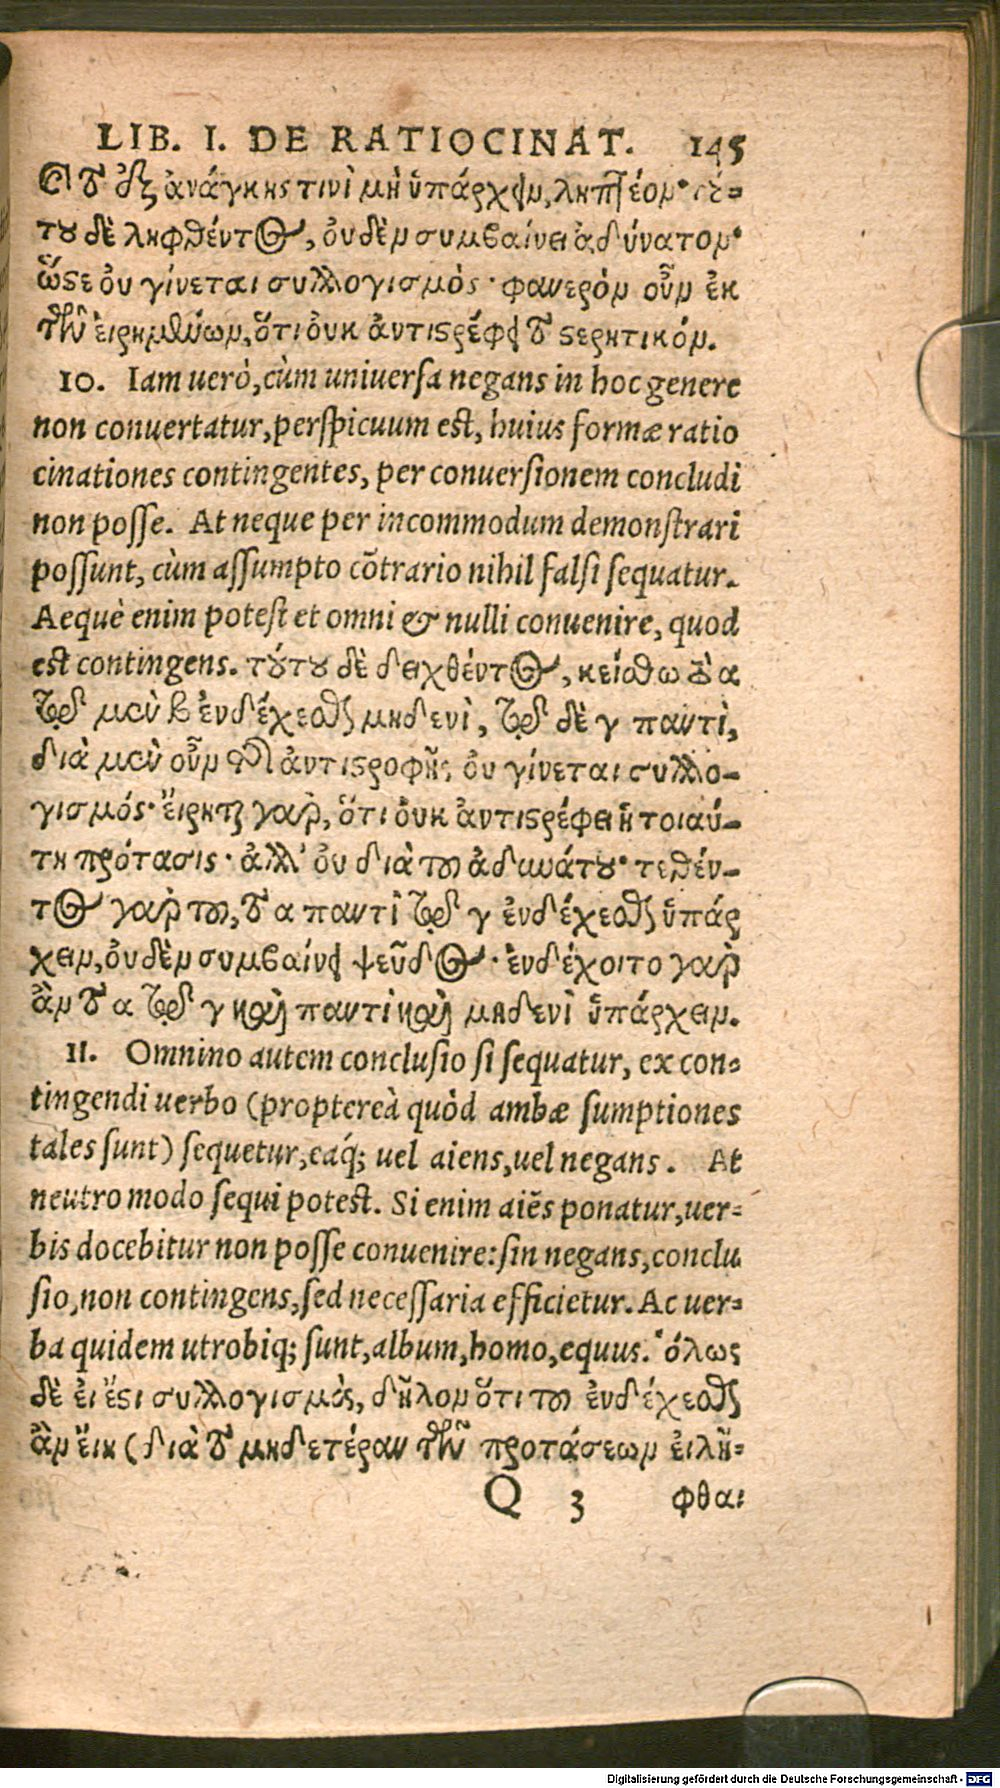 LIB. I. DE RATIOCINAT. 145
τὸ ἐξ ἀνάγκης τινὶ μὴ ὑπάρχειν, ληπτέον· τέ-
του δὲ ληφθέντος, οὐδὲν συμβαίνει ἀδύνατον·
ὥστε οὐ γίνεται συλλογισμός· φανερὸν οὖν ἐκ
τῶν εἰρημένων, ὅτι οὐκ ἀντιστρέφει τὸ στερητικόν.
10. Iam uerò, cùm uniuersa negans in hoc genere
non conuertatur, perspicuum est, huius formæ ratio
cinationes contingentes, per conuersionem concludi
non posse. At neque per incommodum demonstrari
possunt, cùm assumpto cõtrario nihil falsi sequatur.
Aequè enim potest et omni & nulli conuenire, quod
est contingens. τούτου δὲ δειχθέντος, κείσθω τὸ α
τῷ μὲν β ἐνδέχεσθαι μηδενὶ, τῷ δὲ γ παντὶ,
διὰ μὲν οὖν τῆς ἀντιστροφῆς οὐ γίνεται συλλο-
γισμός· εἴρηται γὰρ, ὅτι οὐκ ἀντιστρέφει ἡ τοιαύ-
τη πρότασις· ἀλλ' οὐ διὰ τοῦ ἀδυνάτου· τεθέν-
τος γὰρ τοῦ, τὸ α παντὶ τῷ γ ἐνδέχεσθαι ὑπάρ
χειν, οὐδὲν συμβαίνει ψεῦδος· ἐνδέχοιτο γὰρ
ἂν τὸ α τῷ γ καὶ παντὶ καὶ μηδενὶ ὑπάρχειν.
11. Omnino autem conclusio si sequatur, ex con-
tingendi uerbo (proptereà quòd ambæ sumptiones
tales sunt) sequetur, eaq́; uel aiens, uel negans. At
neutro modo sequi potest. Si enim aiẽs ponatur, uer-
bis docebitur non posse conuenire: sin negans, conclu
sio, non contingens, sed necessaria efficietur. Ac uer-
ba quidem utrobiq; sunt, album, homo, equus. ὅλως
δὲ εἰ ἔστι συλλογισμὸς, δῆλον ὅτι τοῦ ἐνδέχεσθαι
ἂν εἴη (διὰ τὸ μηδετέραν τῶν προτάσεων εἰλῆ-
Q 3 φθαι